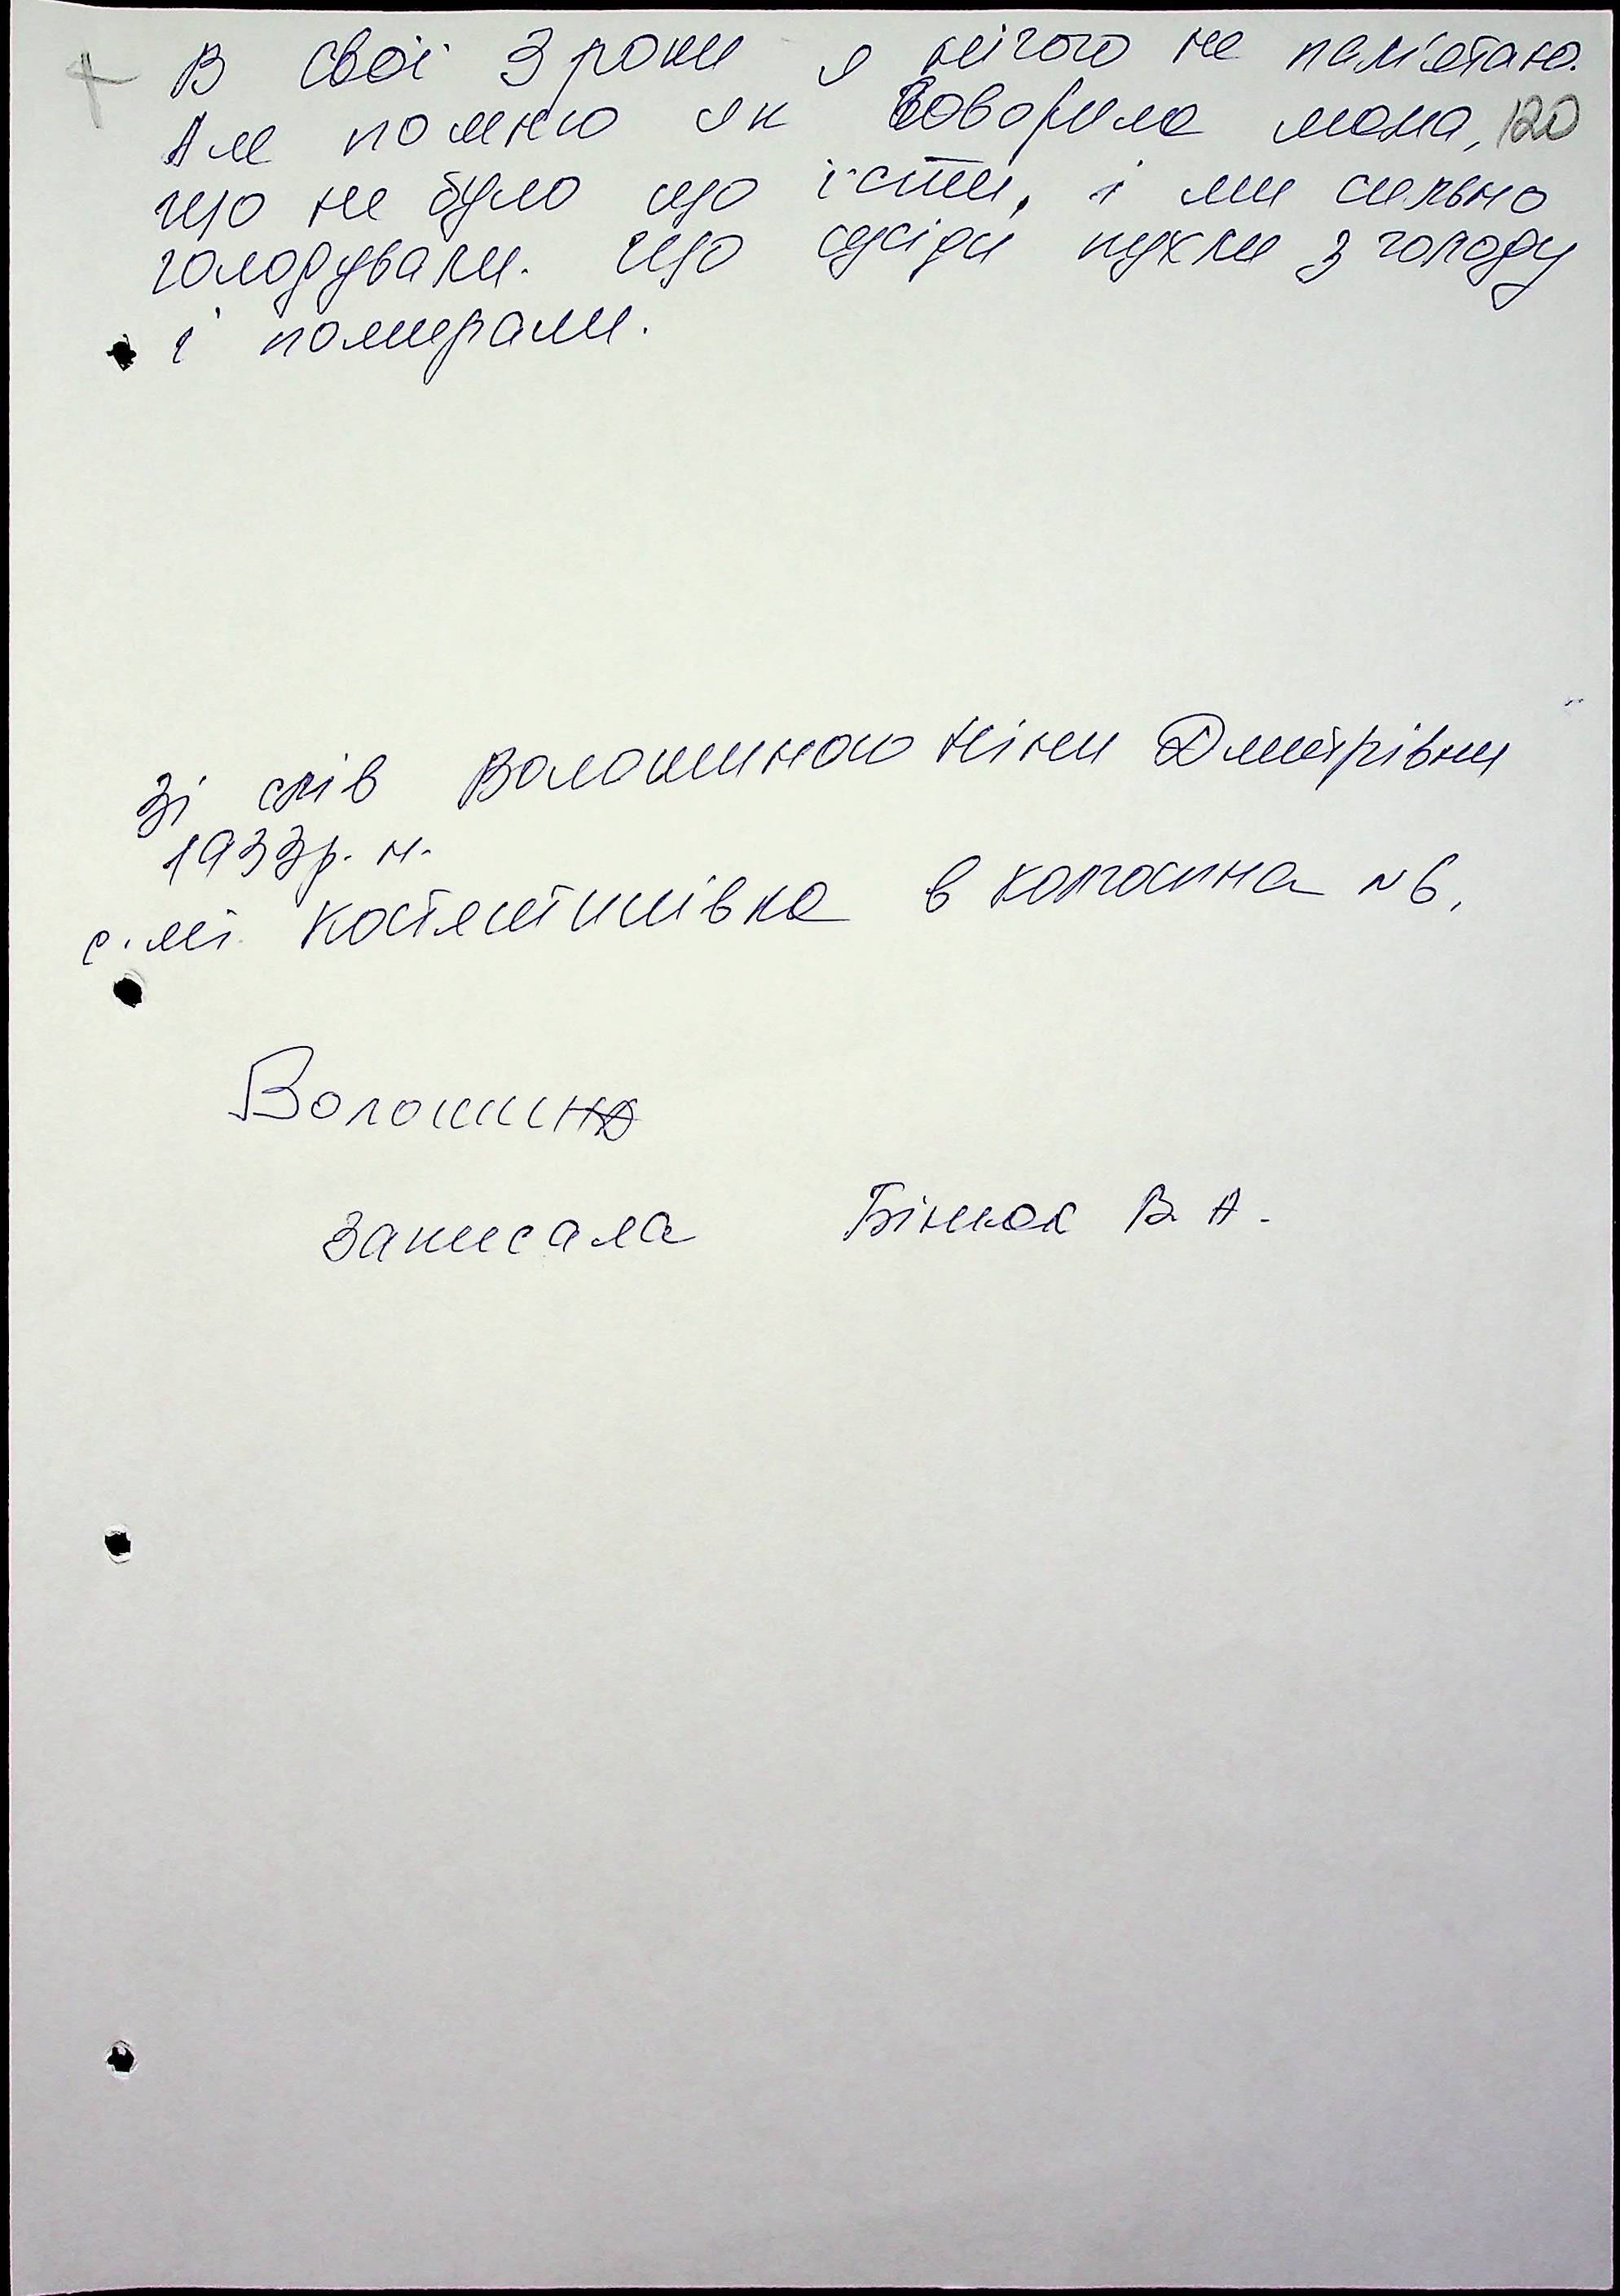 В свої 3 роки я нічого не пам'ятаю.
Але помню як говорила мама, 120
що не було що їсти, і ми сильно
голодували. Що сусіди пухли з голоду
і помирали.
Зі слів Волошиною Ніни Дмитрівни
1933р. н.
Костянтинівка в N6.
Волошина
записала Бінюк В. А.